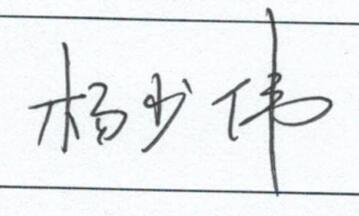 杨少伟